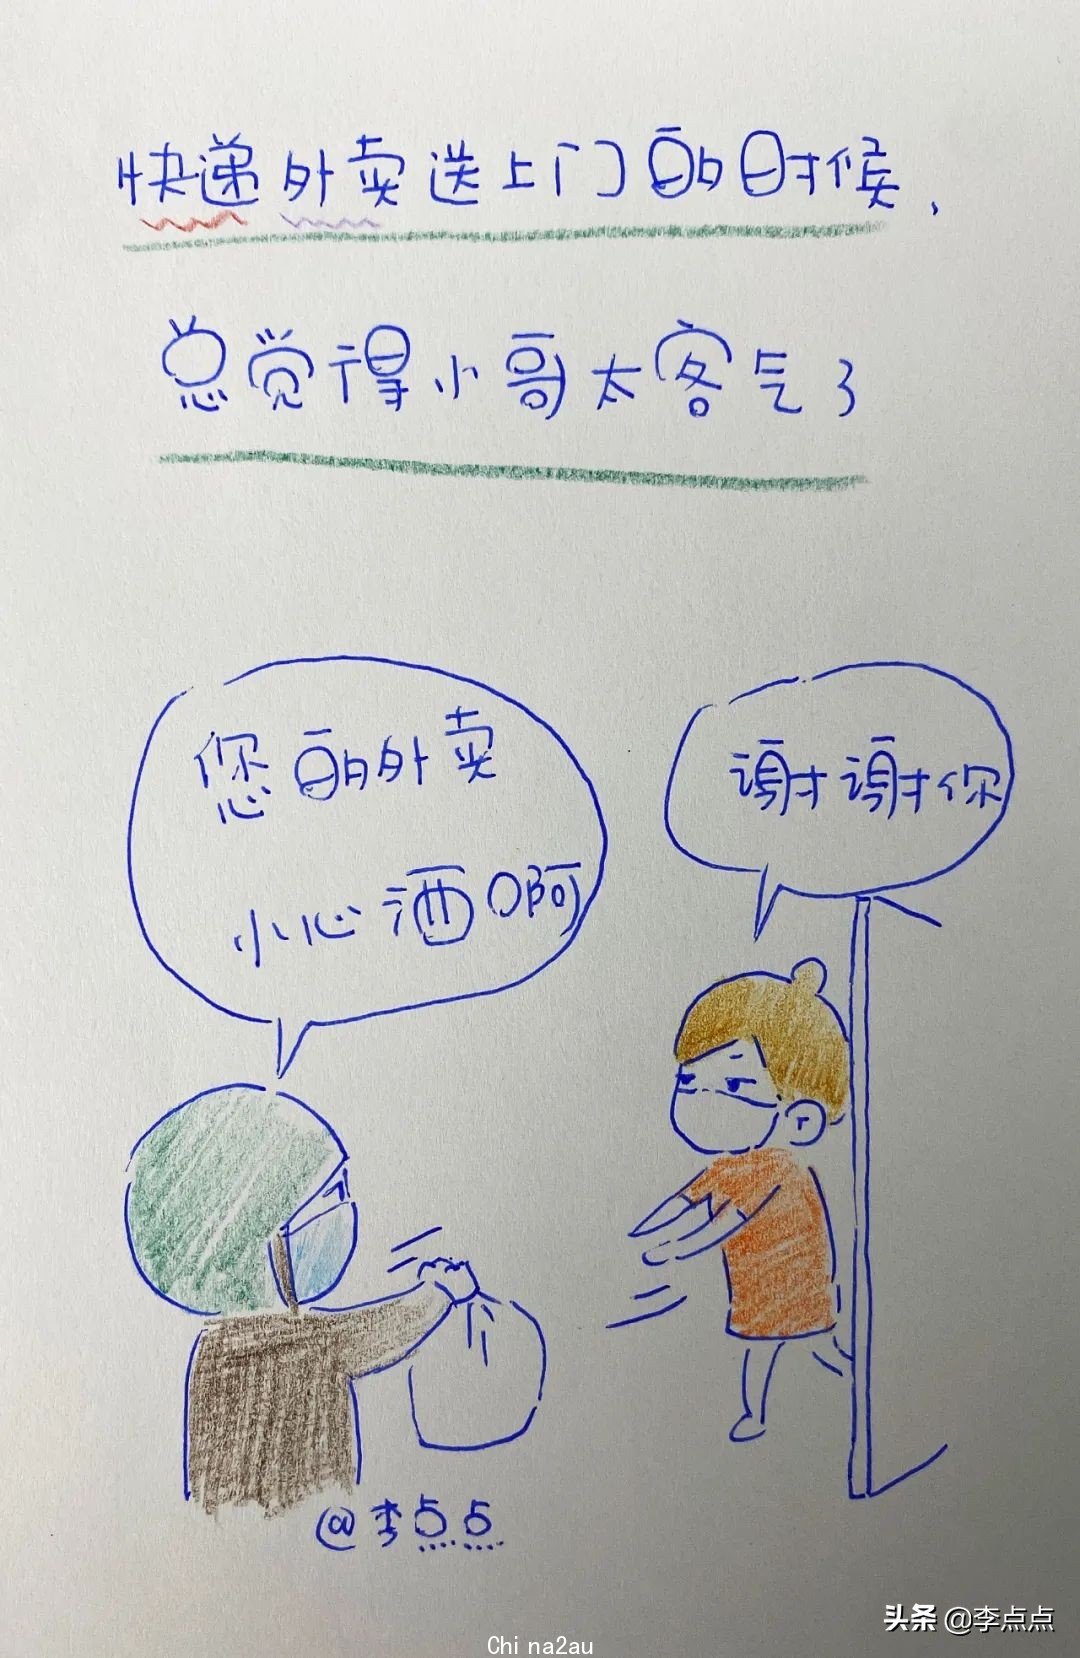 快递外卖送上门的时候，
总觉得小哥太客气了
您的外卖
小心洒啊
谢谢你
@李点点
头条 @李点点
China2au